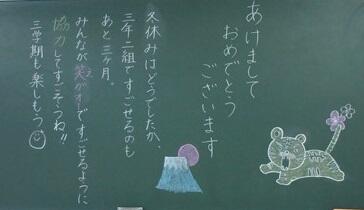 あけまして
おめでとう
ございます
冬休みはどうでしたか、
三年二組ですごせるのも
あと三ヶ月。
みんなが笑がおですごせるように
え
協力してすごそうね!!
三学期も楽しもう